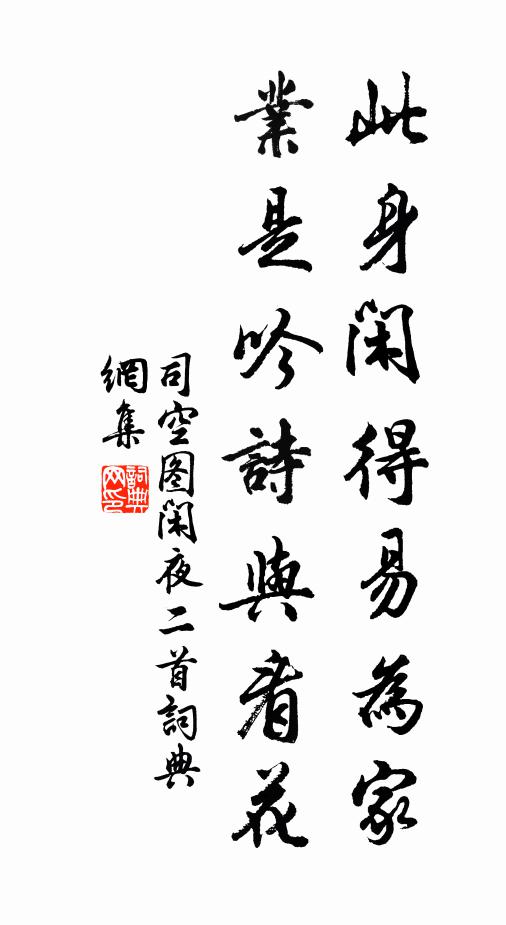 此身閑得易為家
業是吟詩與看花
司空图閑夜二首詞典
網集
詞典
网印